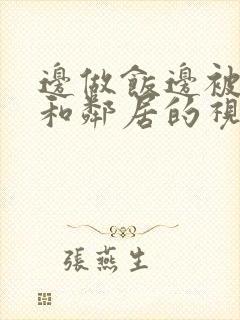 邊做飯邊被
和鄰居的視
張燕生